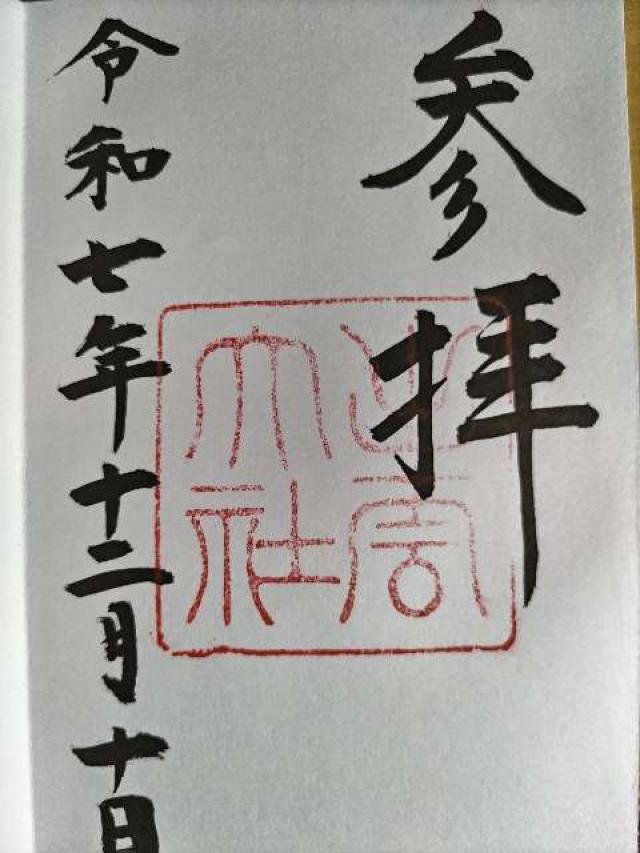 参拝
出雲
大社
令和七年十二月十日